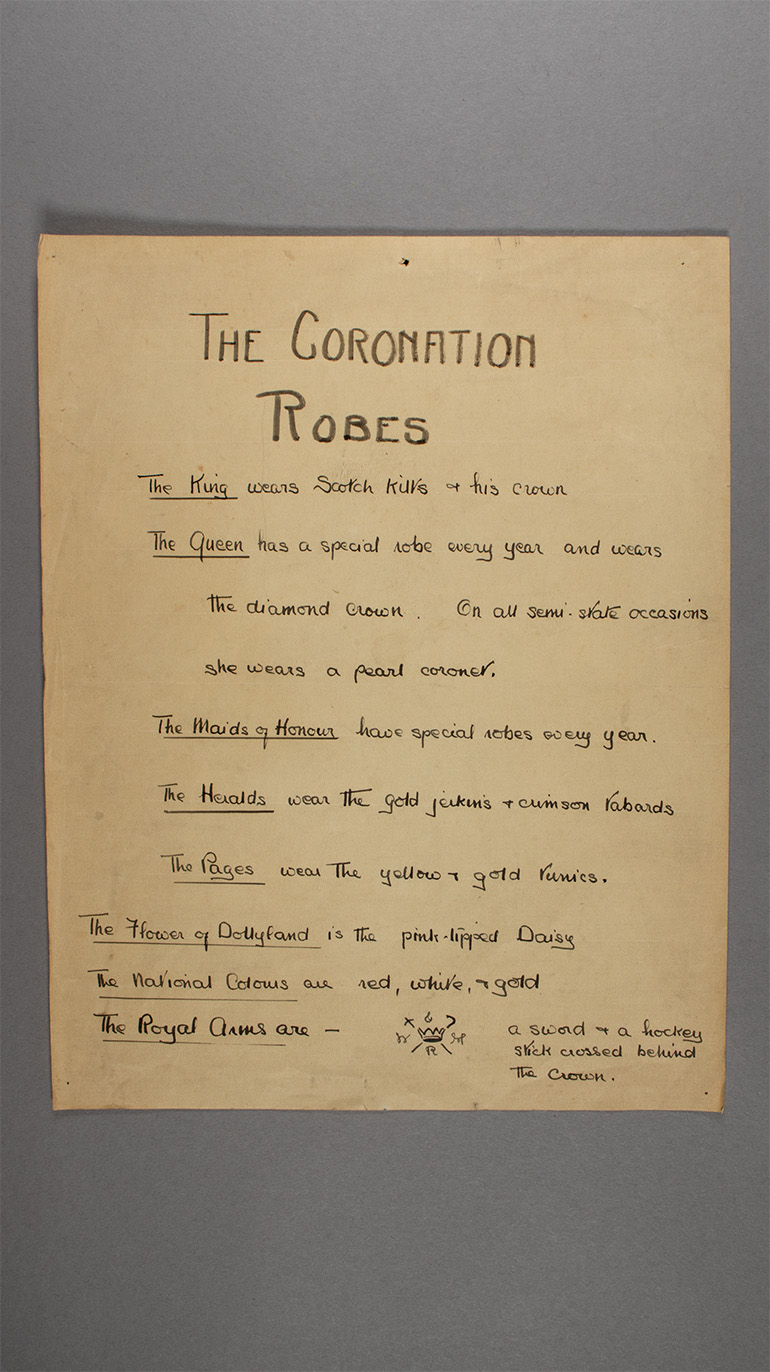 THE CORONATION
ROBES
The King wears Scotch Kilts + his crown
The Queen has a special robe every year and wears
the diamond crown. On all semi-state occasions
she wears a pearl coronet.
The Maids of Honour have special robes every year.
The Heralds wear the gold jerkins + crimson tabards
The Pages wear the yellow + gold tunics.
The Flower of Dollyland is the pink-tipped Daisy
The National Colours are red, white, + gold
The Royal Arms are —
R
a sword + a hockey
stick crossed behind
the crown.